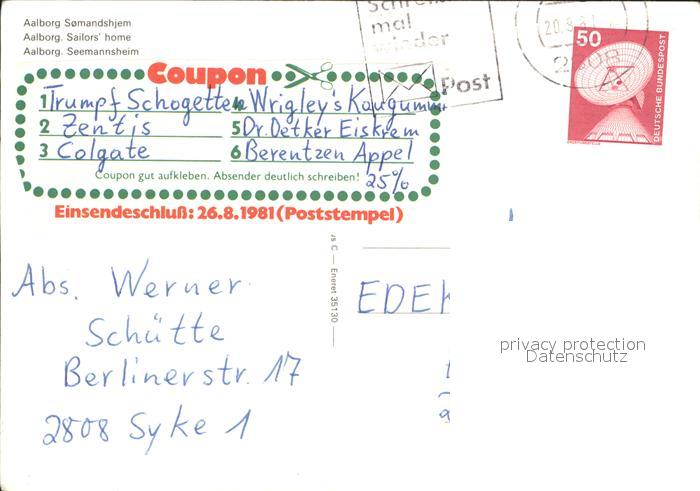 Aalborg Sømandshjem
Aalborg. Sailors' home
Aalborg. Seemannsheim
mal
wieder
Post
50
DEUTSCHE BUNDESPOST
Coupon
1 Trumpf Schogetten 4 Wrigley's Kaugummi
2 Zentis 5 Dr. Oetker Eiskrem
3 Colgate 6 Berentzen Appel
25%
Coupon gut aufkleben. Absender deutlich schreiben!
Einsendeschluß: 26.8.1981 (Poststempel)
s C — Eneret 35130
Abs. Werner
Schütte
Berlinerstr. 17
2808 Syke 1
EDEK
privacy protection
Datenschutz